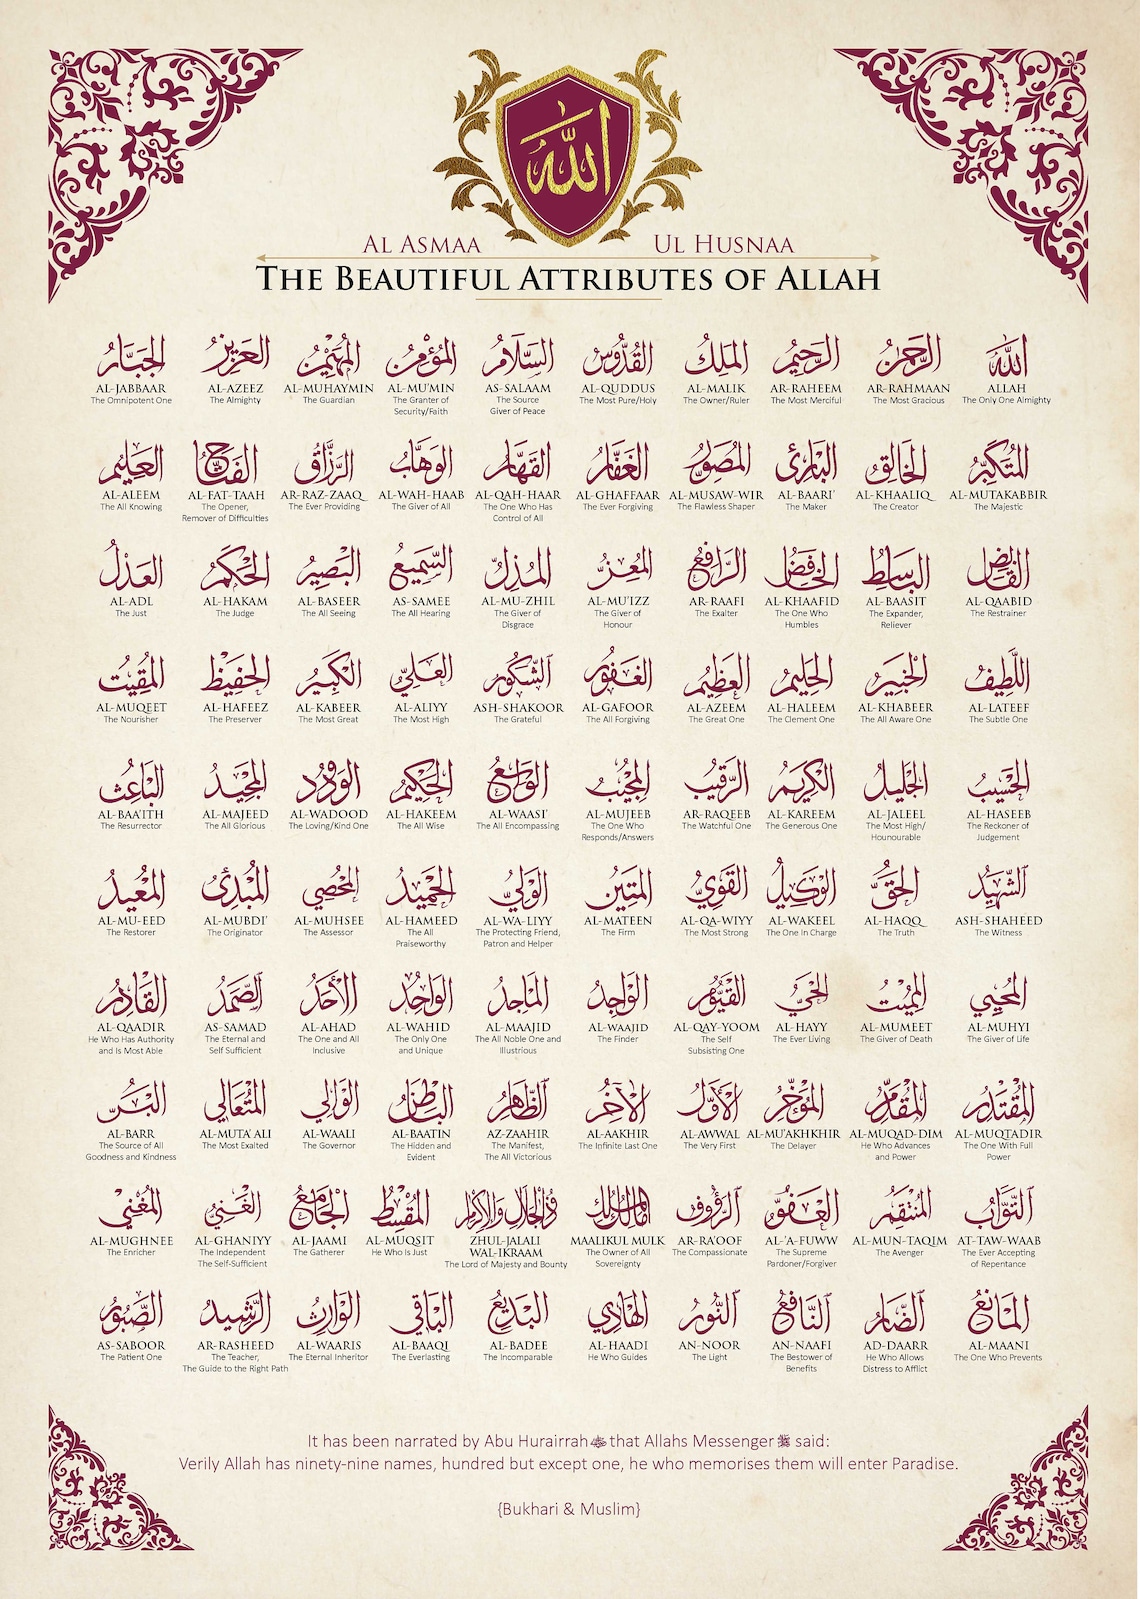 الله
AL ASMAA UL HUSNAA
THE BEAUTIFUL ATTRIBUTES OF ALLAH
الله
ALLAH
The Only One Almighty
الرحمن
AR-RAHMAAN
The Most Gracious
الرحيم
AR-RAHEEM
The Most Merciful
الملك
AL-MALIK
The Owner/Ruler
القدوس
AL-QUDDUS
The Most Pure/Holy
السلام
AS-SALAAM
The Source
Giver of Peace
المؤمن
AL-MU'MIN
The Granter of
Security/Faith
المهيمن
AL-MUHAYMIN
The Guardian
العزيز
AL-AZEEZ
The Almighty
الجبار
AL-JABBAAR
The Omnipotent One
المتكبر
AL-MUTAKABBIR
The Majestic
الخالق
AL-KHAALIQ
The Creator
البارئ
AL-BAARI'
The Maker
المصور
AL-MUSAW-WIR
The Flawless Shaper
الغفار
AL-GHAFFAAR
The Ever Forgiving
القهار
AL-QAH-HAAR
The One Who Has
Control of All
الوهاب
AL-WAH-HAAB
The Giver of All
الرزاق
AR-RAZ-ZAAQ
The Ever Providing
الفتاح
AL-FAT-TAAH
The Opener,
Remover of Difficulties
العليم
AL-ALEEM
The All Knowing
القابض
AL-QAABID
The Restrainer
الباسط
AL-BAASIT
The Expander,
Reliever
الخافض
AL-KHAAFID
The One Who
Humbles
الرافع
AR-RAAFI
The Exalter
المعز
AL-MU'IZZ
The Giver of
Honour
المذل
AL-MU-ZHIL
The Giver of
Disgrace
السميع
AS-SAMEE
The All Hearing
البصير
AL-BASEER
The All Seeing
الحكم
AL-HAKAM
The Judge
العدل
AL-ADL
The Just
اللطيف
AL-LATEEF
The Subtle One
الخبير
AL-KHABEER
The All Aware One
الحليم
AL-HALEEM
The Clement One
العظيم
AL-AZEEM
The Great One
الغفور
AL-GAFOOR
The All Forgiving
الشكور
ASH-SHAKOOR
The Grateful
العلي
AL-ALIYY
The Most High
الكبير
AL-KABEER
The Most Great
الحفيظ
AL-HAFEEZ
The Preserver
المقيت
AL-MUQEET
The Nourisher
الحسيب
AL-HASEEB
The Reckoner of
Judgement
الجليل
AL-JALEEL
The Most High/
Hounourable
الكريم
AL-KAREEM
The Generous One
الرقيب
AR-RAQEEB
The Watchful One
المجيب
AL-MUJEEB
The One Who
Responds/Answers
الواسع
AL-WAASI'
The All Encompassing
الحكيم
AL-HAKEEM
The All Wise
الودود
AL-WADOOD
The Loving/Kind One
المجيد
AL-MAJEED
The All Glorious
الباعث
AL-BAA'ITH
The Resurrector
الشهيد
ASH-SHAHEED
The Witness
الحق
AL-HAQQ
The Truth
الوكيل
AL-WAKEEL
The One In Charge
القوي
AL-QA-WIYY
The Most Strong
المتين
AL-MATEEN
The Firm
الولي
AL-WA-LIYY
The Protecting Friend,
Patron and Helper
الحميد
AL-HAMEED
The All
Praiseworthy
المحصي
AL-MUHSEE
The Assessor
المبدئ
AL-MUBDI'
The Originator
المعيد
AL-MU-EED
The Restorer
المحيي
AL-MUHYI
The Giver of Life
المميت
AL-MUMEET
The Giver of Death
الحي
AL-HAYY
The Ever Living
القيوم
AL-QAY-YOOM
The Self
Subsisting One
الواجد
AL-WAAJID
The Finder
الماجد
AL-MAAJID
The All Noble One and
Illustrious
الواحد
AL-WAHID
The Only One
and Unique
الأحد
AL-AHAD
The One and All
Inclusive
الصمد
AS-SAMAD
The Eternal and
Self Sufficient
القادر
AL-QAADIR
He Who Has Authority
and Is Most Able
المقتدر
AL-MUQTADIR
The One With Full
Power
المقدم
AL-MUQAD-DIM
He Who Advances
and Power
المؤخر
AL-MU'AKHKHIR
The Delayer
الأول
AL-AWWAL
The Very First
الآخر
AL-AAKHIR
The Infinite Last One
الظاهر
AZ-ZAAHIR
The Manifest,
The All Victorious
الباطن
AL-BAATIN
The Hidden and
Evident
الوالي
AL-WAALI
The Governor
المتعالي
AL-MUTA' ALI
The Most Exalted
البر
AL-BARR
The Source of All
Goodness and Kindness
التواب
AT-TAW-WAAB
The Ever Accepting
of Repentance
المنتقم
AL-MUN-TAQIM
The Avenger
العفو
AL-'A-FUWW
The Supreme
Pardoner/Forgiver
الرؤوف
AR-RA'OOF
The Compassionate
مالك الملك
MAALIKUL MULK
The Owner of All
Sovereignty
ذو الجلال والإكرام
ZHUL-JALALI
WAL-IKRAAM
The Lord of Majesty and Bounty
المقسط
AL-MUQSIT
He Who Is Just
الجامع
AL-JAAMI
The Gatherer
الغني
AL-GHANIYY
The Independent
The Self-Sufficient
المغني
AL-MUGHNEE
The Enricher
المانع
AL-MAANI
The One Who Prevents
الضار
AD-DAARR
He Who Allows
Distress to Afflict
النافع
AN-NAAFI
The Bestower of
Benefits
النور
AN-NOOR
The Light
الهادي
AL-HAADI
He Who Guides
البديع
AL-BADEE
The Incomparable
الباقي
AL-BAAQI
The Everlasting
الوارث
AL-WAARIS
The Eternal Inheritor
الرشيد
AR-RASHEED
The Teacher,
The Guide to the Right Path
الصبور
AS-SABOOR
The Patient One
It has been narrated by Abu Hurairrah that Allahs Messenger ﷺ said:
Verily Allah has ninety-nine names, hundred but except one, he who memorises them will enter Paradise.
{Bukhari & Muslim}